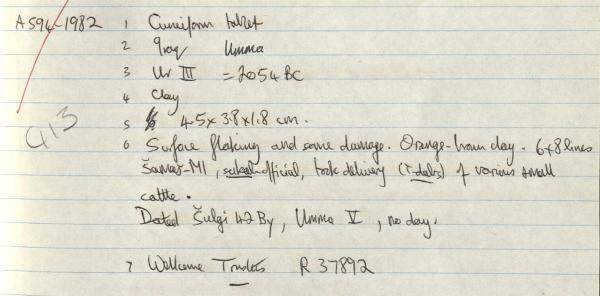 A594-1982 1 Cuneiform tablet
2 Iraq Umma
3 Ur III = 2054 BC
4 Clay
5 4.5 x 3.8 x 1.8 cm.
6 Surface flaking and some damage. Orange-brown clay. 6x8 lines
Šamaš-MI, sukal official, took delivery (ì-dab5) of various small
cattle.
Dated Šulgi 42 By, Umma V, no day.
7 Wellcome Trustees R 37892